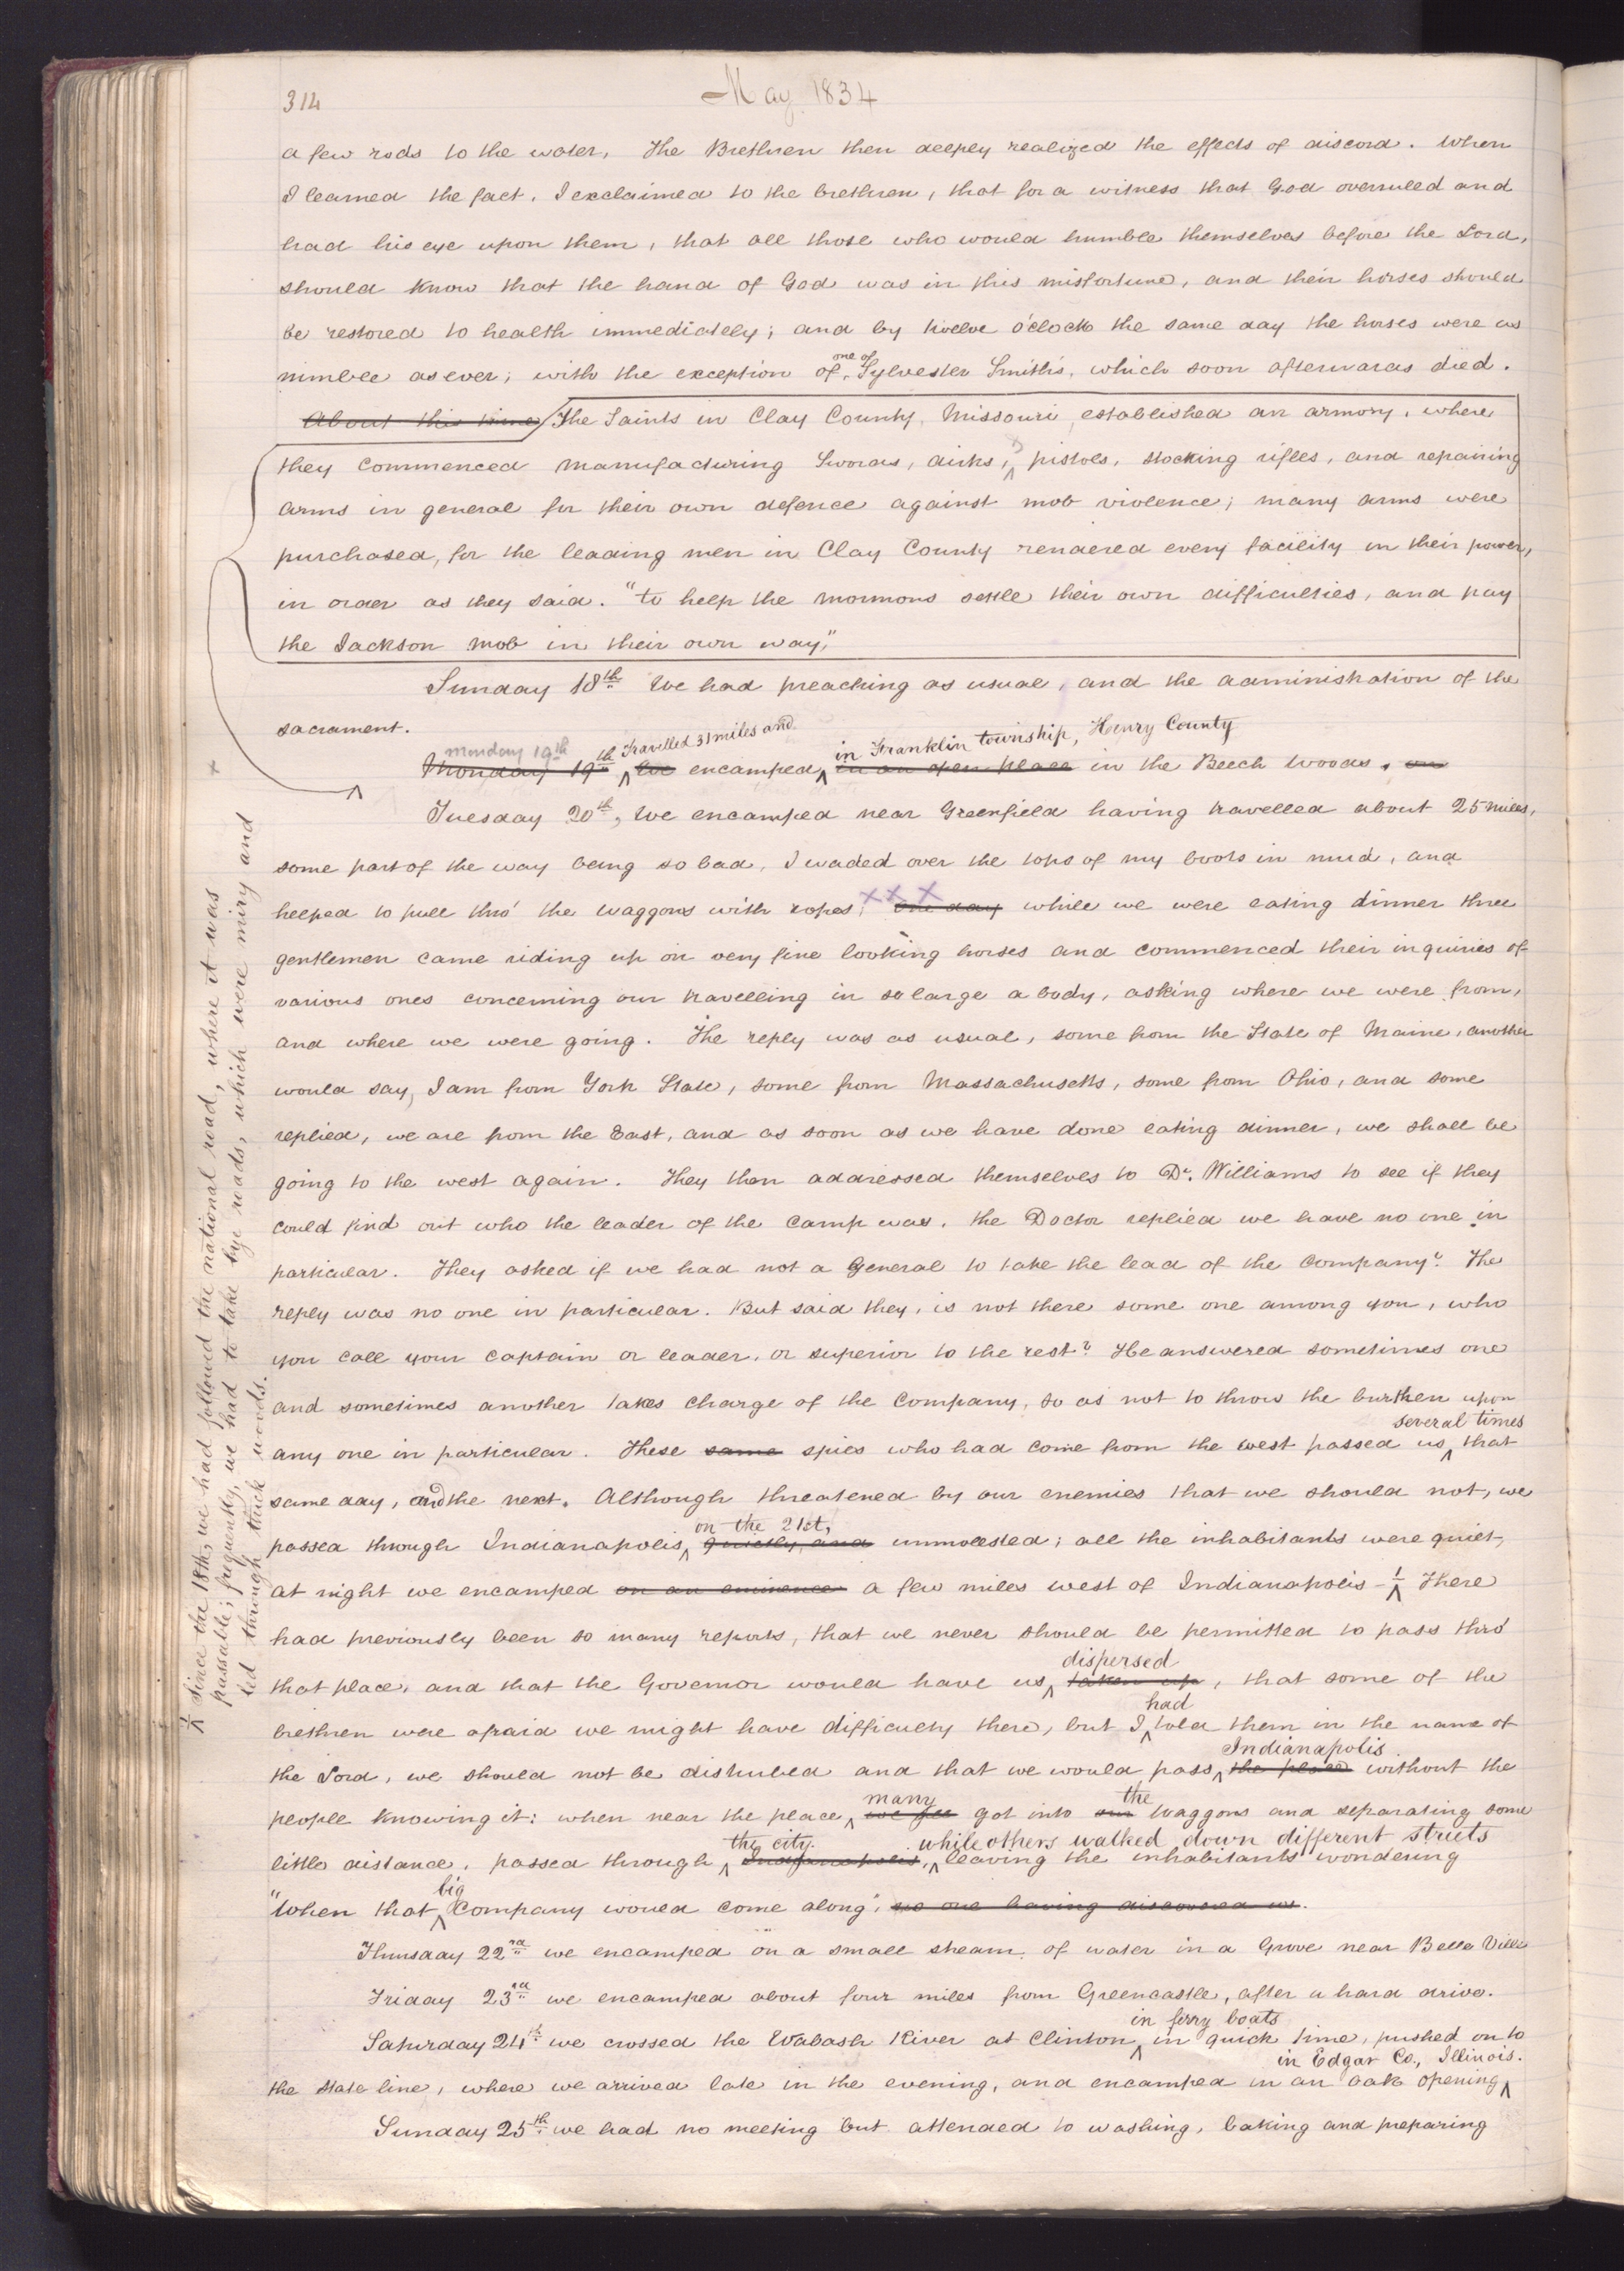 314
May 1834
a few rods to the water, The Brethren then deeply realized the effects of discord. When
I learned the fact, I exclaimed to the brethren, that for a witness that God overruled and
had his eye upon them, that all those who would humble themselves before the Lord,
should know that the hand of God was in this misfortune, and their horses should
be restored to health immediately; and by twelve o'clock the same day the horses were as
one of
nimble as ever; with the exception of Sylvester Smith's, which soon afterwards died.
About this time The Saints in Clay County, Missouri, established an armory, where
they commenced manufacturing Swords, dirks, pistols, stocking rifles, and repairing
arms in general for their own defence against mob violence; many arms were
purchased, for the leading men in Clay County rendered every facility in their power,
in order as they said. "to help the mormons settle their own difficulties, and pay
the Jackson mob in their own way,"
Sunday 18th We had preaching as usual, and the administration of the
sacrament.
monday 19th Travelled 31 miles and in Franklin township, Henry County
Monday 19th We encamped in an open place in the Beech woods. on
Tuesday 20th, We encamped near Greenfield having travelled about 25 miles,
some part of the way being so bad, I waded over the tops of my boots in mud, and
helped to pull thro' the waggons with ropes; XXX one day while we were eating dinner three
gentlemen came riding up on very fine looking horses and commenced their inquiries of
various ones concerning our travelling in so large a body, asking where we were from,
and where we were going. The reply was as usual, some from the State of Maine, another
would say, I am from York State, some from Massachusetts, some from Ohio, and some
replied, we are from the East, and as soon as we have done eating dinner, we shall be
going to the west again. They then addressed themselves to Dr. Williams to see if they
could find out who the leader of the camp was. the Doctor replied we have no one in
particular. They asked if we had not a General to take the lead of the Company? The
reply was no one in particular. But said they, is not there some one among you, who
you call your captain or leader, or superior to the rest? He answered sometimes one
and sometimes another takes charge of the company, so as not to throw the burthen upon
several times
any one in particular. These same spies who had come from the west passed us that
same day, and the next. Although threatened by our enemies that we should not, we
on the 21st,
passed through Indianapolis quietly, and unmolested; all the inhabitants were quiet,
at night we encamped on an eminence a few miles west of Indianapolis - 1 There
had previously been so many reports, that we never should be permitted to pass thro'
dispersed
that place, and that the Governor would have us taken up, that some of the
had
brethren were afraid we might have difficulty there, but I told them in the name of
Indianapolis
the Lord, we should not be disturbed and that we would pass the place without the
many the
people knowing it: when near the place we all got into our waggons and separating some
the city. while others walked down different streets
little distance, passed through Indianapolis, leaving the inhabitants wondering
big
"When that Company would come along", no one having discovered us.
Thursday 22nd we encamped on a small stream of water in a Grove near Belle Ville
Friday 23rd we encamped about four miles from Greencastle, after a hard drive.
in ferry boats
Saturday 24th we crossed the Wabash River at Clinton in quick time, pushed on to
in Edgar Co., Illinois.
the state line, where we arrived late in the evening, and encamped in an oak opening
Sunday 25th we had no meeting but attended to washing, baking and preparing
1 Since the 18th, we had followed the national road, where it was
passable; frequently, we had to take bye roads, which were miry and
led through thick woods.